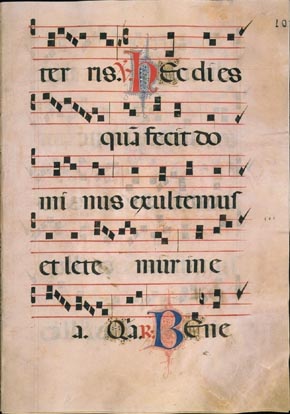 ter ris. V. hEc di es
quā fecit do
mi nus exultemus
et lete mur in e
a. Qa. R. BEne